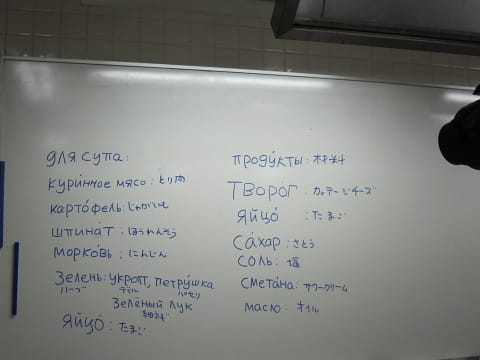 для супа:
кури́нное мясо: とり肉
карто́фель: じゃがいも
шпина́т: ほうれんそう
морко́вь: にんじん
Зелень: укро́п, петру́шка
ハーブ ディル パセリ
Зелёный лук
яйцо́: たまご
проду́кты:材料
творо́г: カッテージチーズ
яйцо́: たまご
са́хар: さとう
соль: 塩
смета́на: サワークリーム
масло: オイル